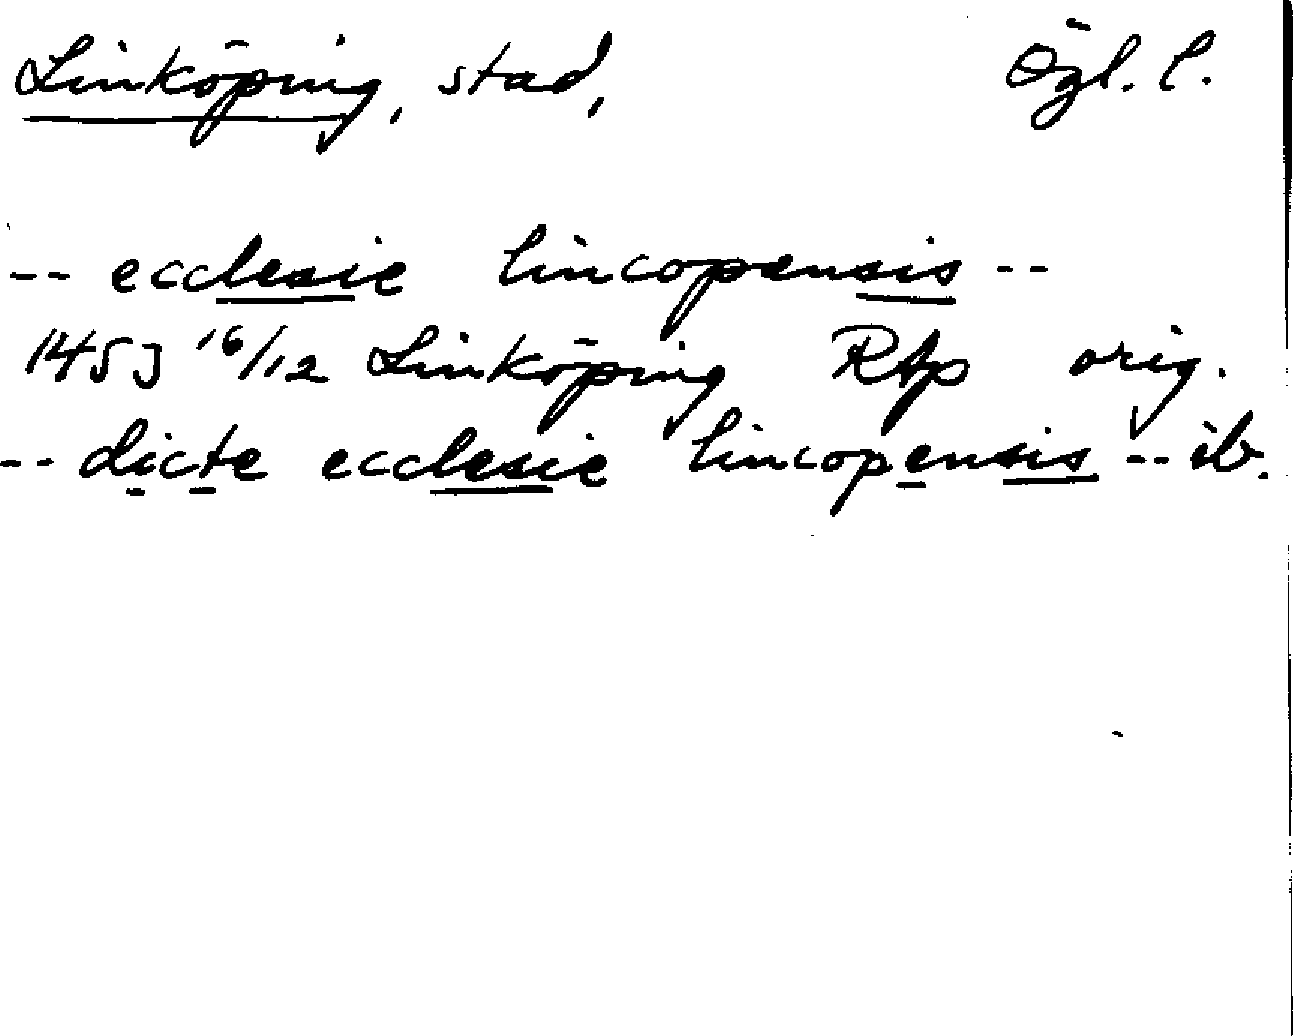 Linköping, stad, Ögl. l.
-- ecclesie lincopensis --
1453 16/12 Linköping RAp orig.
-- dicte ecclesie lincopensis -- ib.